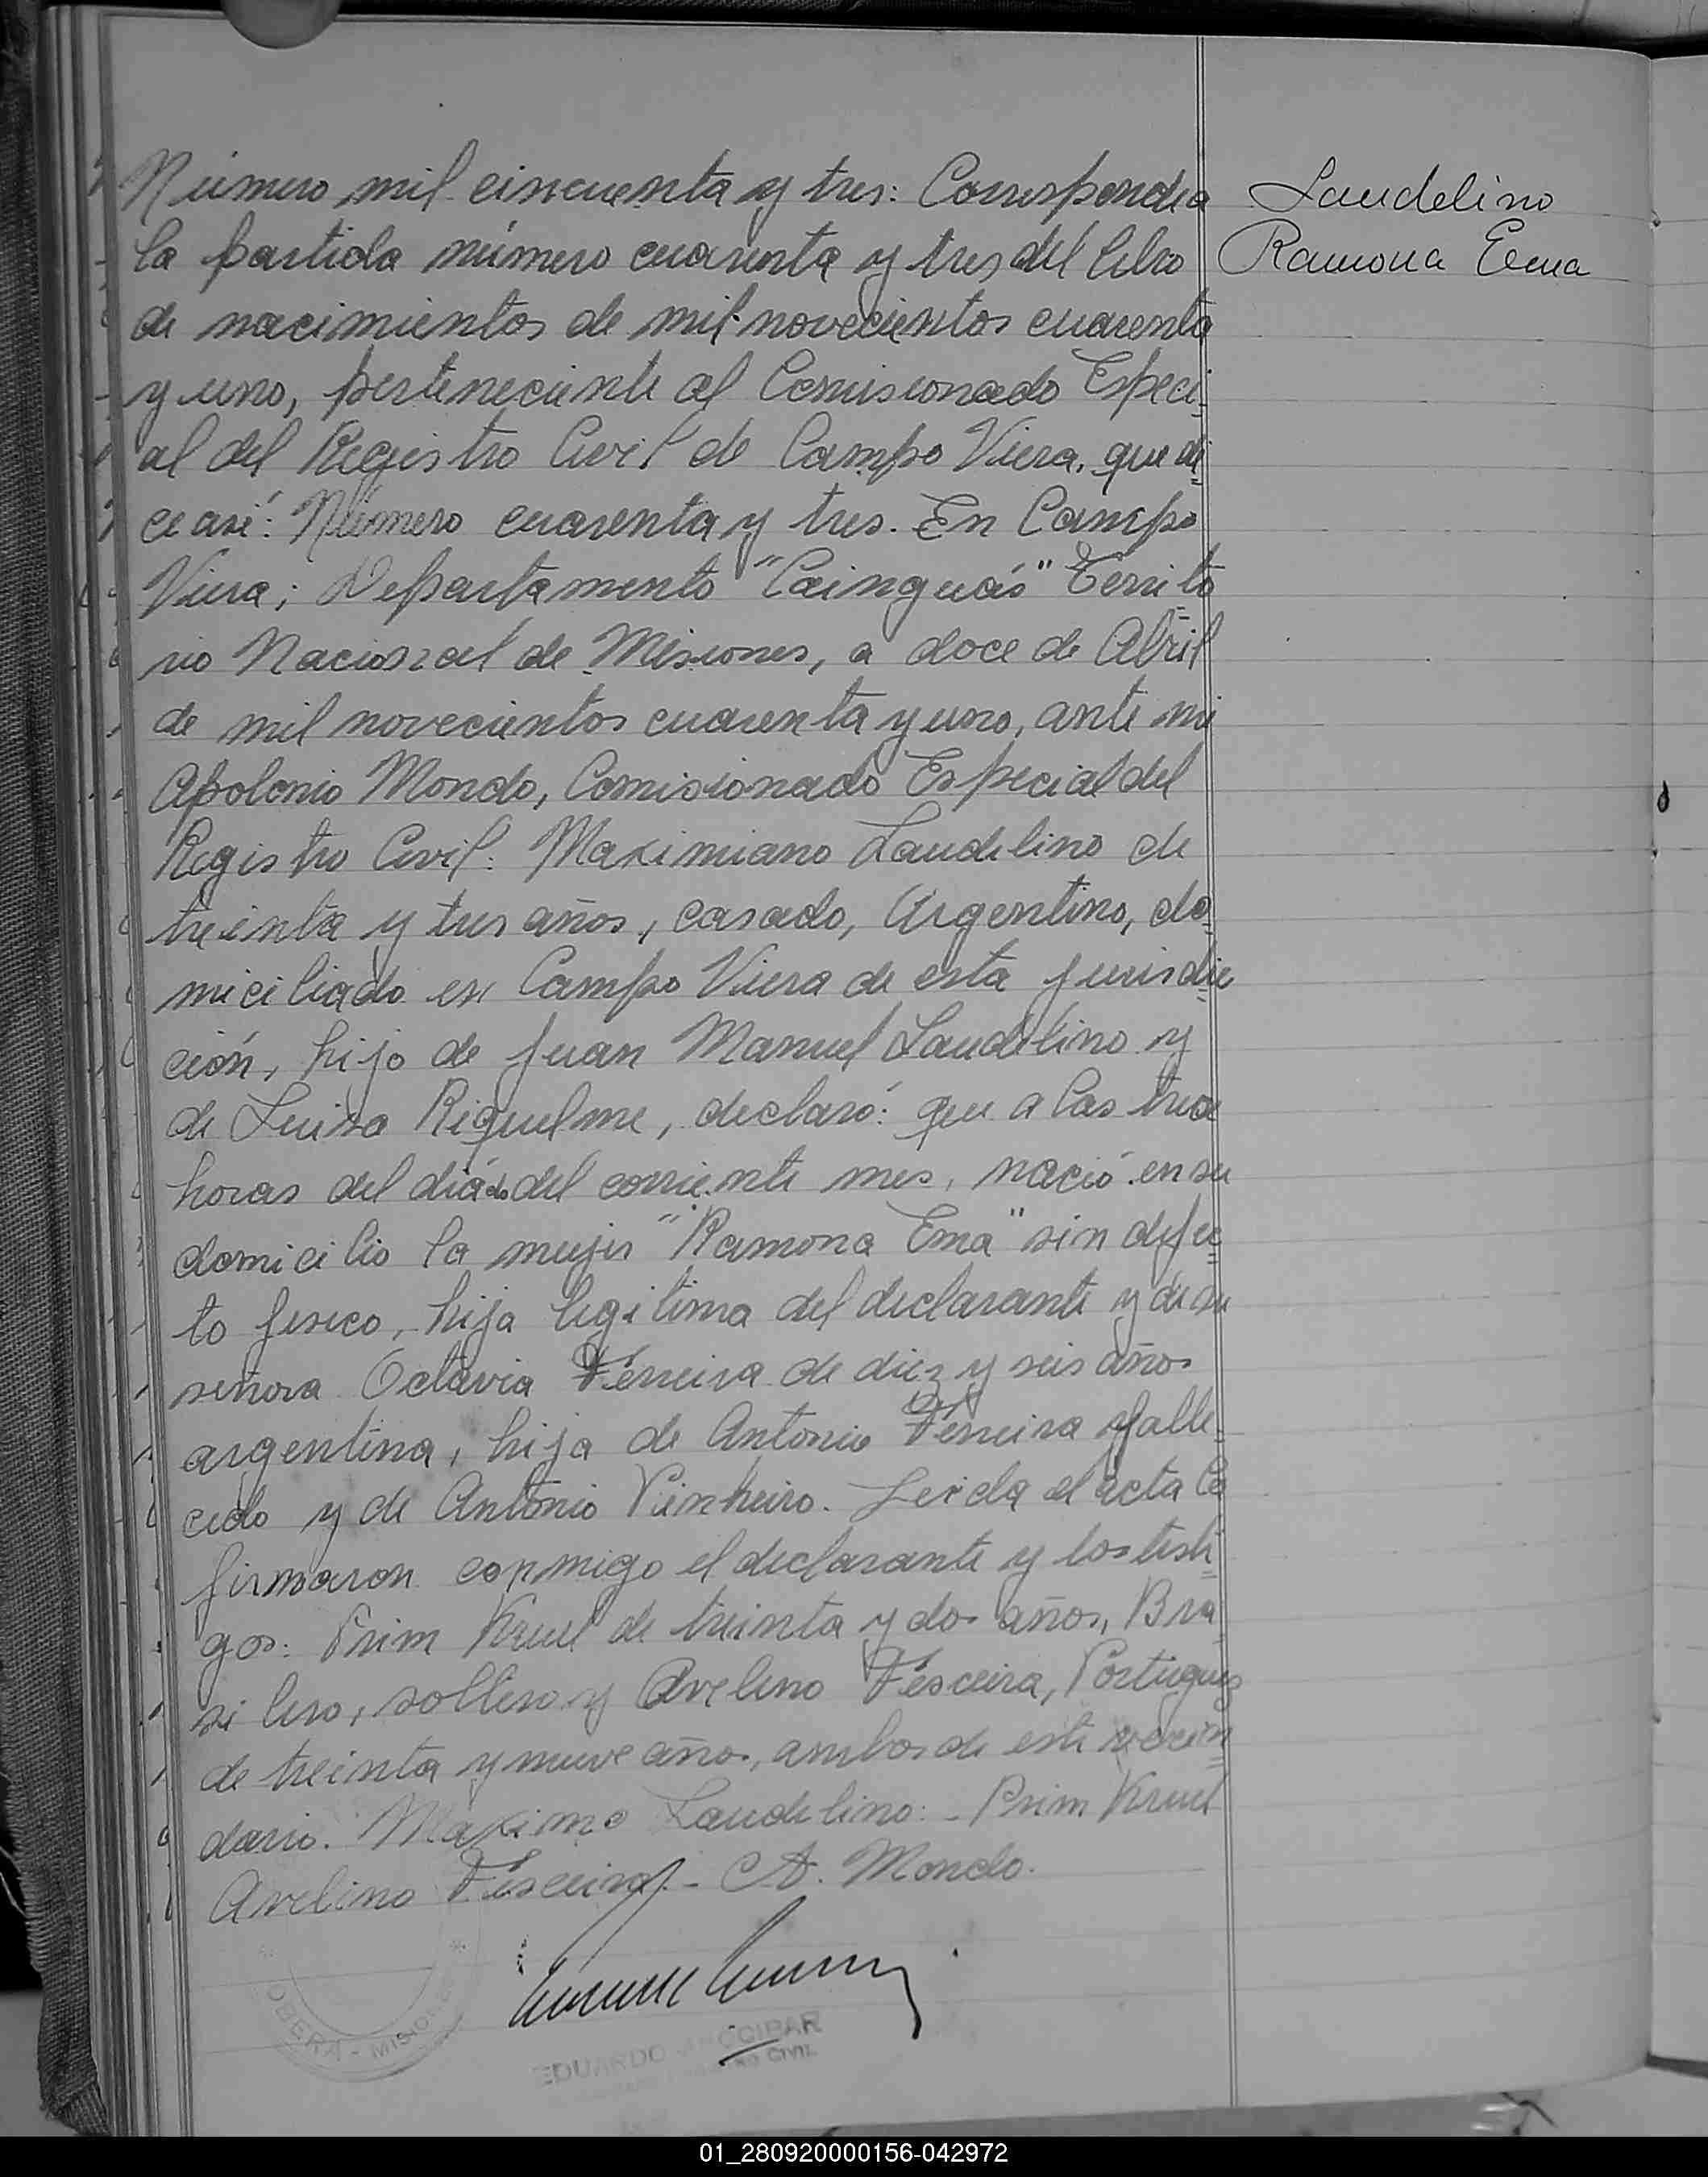 Laudelino
Ramona Ema
Número mil cincuenta y tres: Corresponde a
la partida número cuarenta y tres del libro
de nacimientos de mil novecientos cuarenta
y uno, perteneciente al Comisionado Especi-
al del Registro Civil de Campo Viera, que di
ce así: Número cuarenta y tres. En Campo
Viera; Departamento "Cainguás" Territo
rio Nacional de Misiones, a doce de Abril
de mil novecientos cuarenta y uno, ante mi
Apolonio Mondo, Comisionado Especial del
Registro Civil: Maximiano Laudelino de
treinta y tres años, casado, Argentino, do
miciliado en Campo Viera de esta jurisdic
ción, hijo de Juan Manuel Laudelino y
de Luisa Riquelme, declaró: que a las trece
horas del día dos del corriente mes, nació en su
domicilio la mujer "Ramona Ema" sin defec
to fisico, hija legitima del declarante y de su
señora Octavia Ferreira de diez y seis años
argentina, hija de Antonio Ferreira falle
cido y de Antonio Pinheiro. Leida el acta la
firmaron conmigo el declarante y los testi
gos: Prim Kruel de treinta y dos años, Bra
silero, soltero y Avelino Tesceira, Portugues
de treinta y nueve años, ambos de este vecin
dario. Maximo Laudelino: - Prim Kruel
Avelino Tesceira. - A. Mondo.
OBERA - MISIONES
EDUARDO
CIVIL
01_280920000156-042972